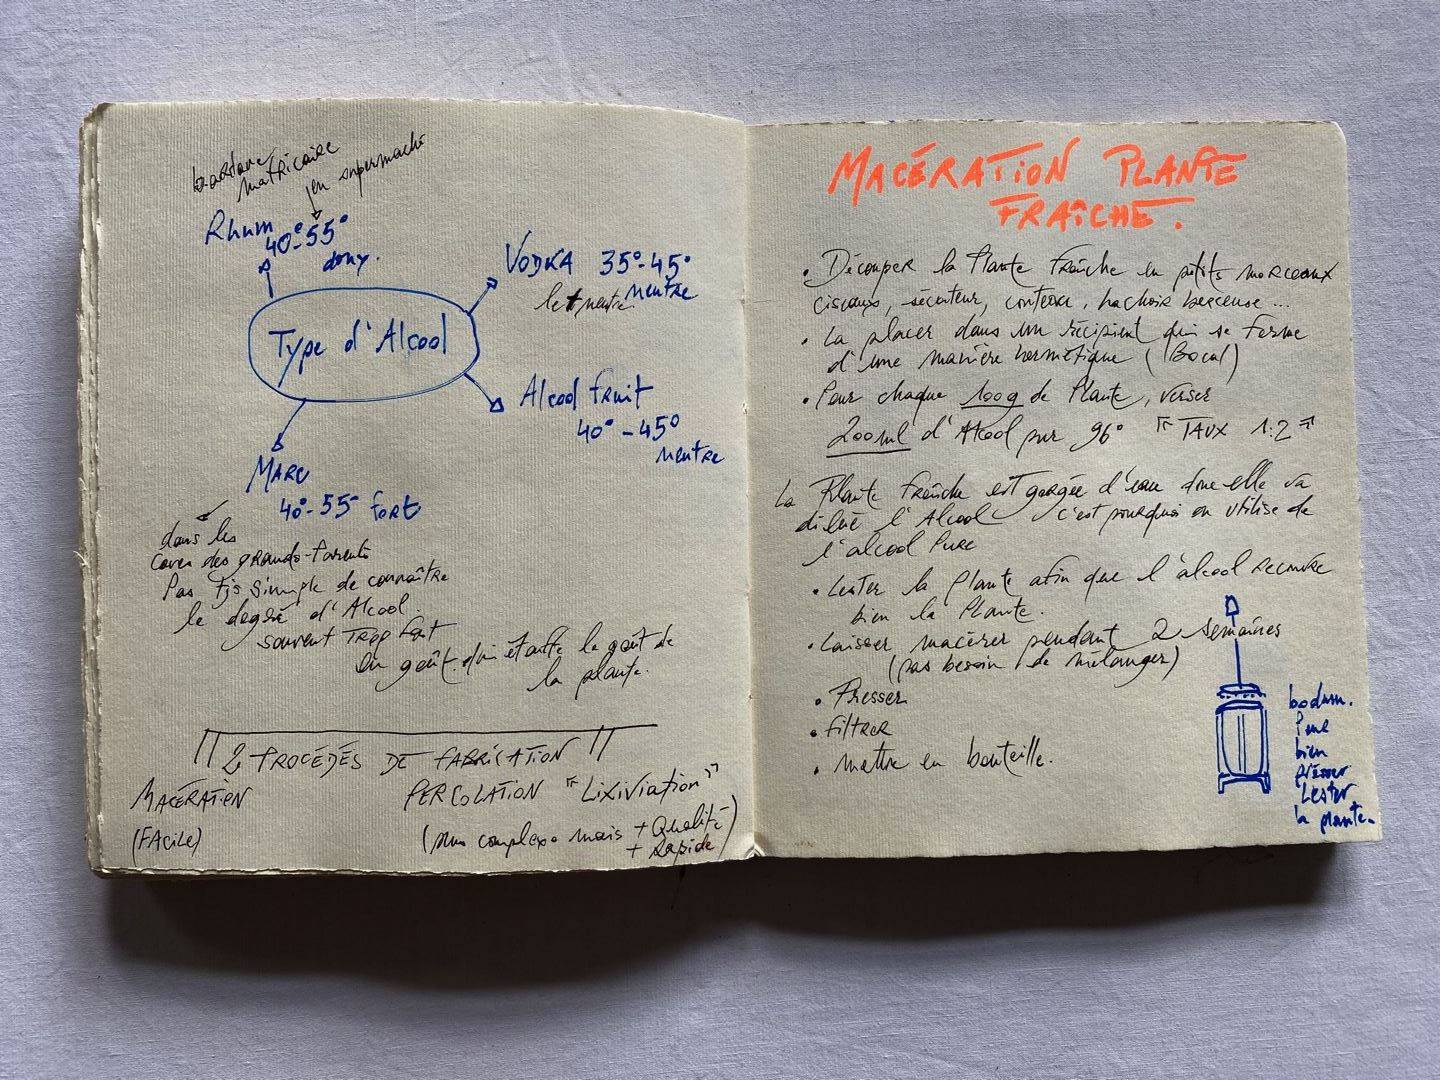 bardane
matricaire
en supermaché
Rhum
40°-55°
doux.
VODKA 35°-45°
neutre
le + neutre.
Type d'Alcool
Alcool fruit
40°-45°
neutre
MARC
40°-55° fort
dans les
caves des grands-parents
Pas tjs simple de connaître
le degré d'Alcool.
souvent Trop fort
un goût qui étouffe le goût de
la plante.
2 PROCÉDÉS DE FABRICATION
MACÉRATION
(FACILE)
PERCOLATION "Lixiviation"
(plus complexe mais + Qualité
+ Rapide)
MACÉRATION PLANTE
FRAÎCHE.
• Découper la Plante Fraîche en petits morceaux
ciseaux, sécateur, couteau, hachoir berceuse...
• La placer dans un récipient qui se ferme
d'une manière hermétique (Bocal)
• Pour chaque 100g de Plante, verser
200ml d'Alcool pur 96° "TAUX 1:2"
La Plante Fraîche est gorgée d'eau donc elle va
diluer l'Alcool c'est pourquoi on utilise de
l'alcool Pure
• Lester la plante afin que l'alcool recouvre
bien la Plante.
• Laisser macérer pendant 2 semaines
(pas besoin de mélanger)
• Presser
• Filtrer
• mettre en bouteille.
bodum.
Pour
bien
presser
Lester
la plante.